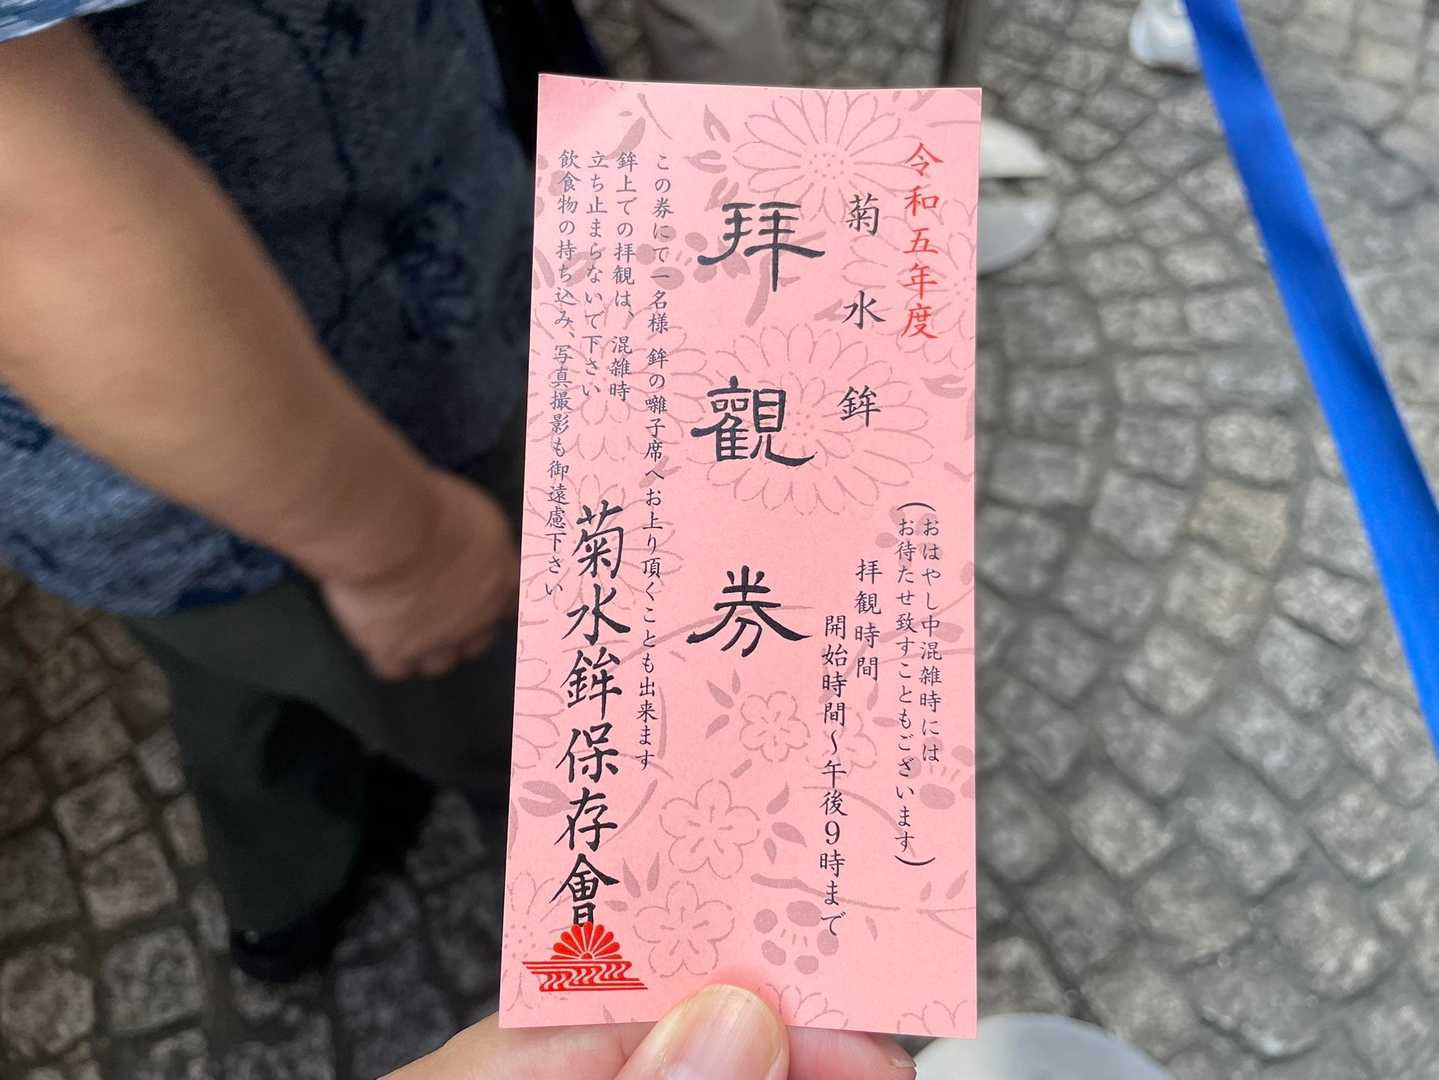 令和五年度
(おはやし中混雑時には
お待たせ致すこともございます)
菊水鉾
拝観時間
開始時間～午後9時まで
拝觀券
この券にて一名様 鉾の囃子席へお上り頂くことも出来ます
鉾上での拝観は、混雑時
立ち止まらないで下さい
飲食物の持ち込み、写真撮影も御遠慮下さい
菊水鉾保存會